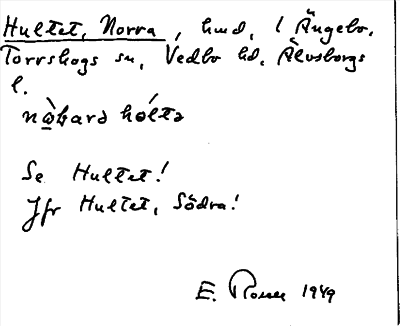 Hultet, Norra, hmd, l Ängebo,
Torrskogs sn, Vedbo hd, Älvsborgs
l.
Se Hultet!
Jfr Hultet, Södra!
E. 1949